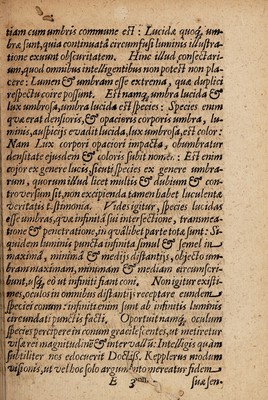 tiam cum umbris commune est: Lucidæ quoq, um-
bræ sunt, quia continuatâ circumfusi luminis illustra-
tione exuunt obscuritatem. Hinc illud consectari-
um, quod omnibus intelligentibus non potest non pla-
cere: Lumen & umbram esse extrema, quæ duplici
respectu coire possunt. Est namq, umbra lucida &
lux umbrosa, umbra lucida est species: Species enim
quæ erat densioris, & opacioris corporis umbra, lu-
minis, auspicijs evadit lucida, lux umbrosa, est color:
Nam Lux corpori opaciori impacta, obumbratur
densitate ejusdem & coloris subit nomē: Est enim
color ex genere lucis, sicuti species ex genere umbra-
rum, quorum illud licet multis & dubium & con-
troversum sit, non excipienda tamen habet luculenta
veritatis testimonia. Vides igitur, species lucidas
esse umbras, quæ infinitâ sui intersectione, transmea-
tione & penetratione, in quâlibet parte totæ sunt: Si-
quidem luminis puncta infinita simul & semel in
maximâ, minimâ & medijs distantijs, objecto um-
bram maximam, minimam & mediam circumscri-
bunt, usq, eò ut infiniti fiant coni. Non igitur existi-
mes, oculos in omnibus distantijs receptare eundem
speciei conum: infiniti enim sunt ab infinitis luminis
circumdati punctis facti. Oportuit namq, oculum
species percipere in conum gracilescentes, ut metiretur
visæ rei magnitudinē & intervallū: Intelligis quàm
subtiliter nos edocuerit Doctiss. Kepplerus modum
visionis, ut vel hoc solo argumento mereatur fidem
E 3 suæ sen-